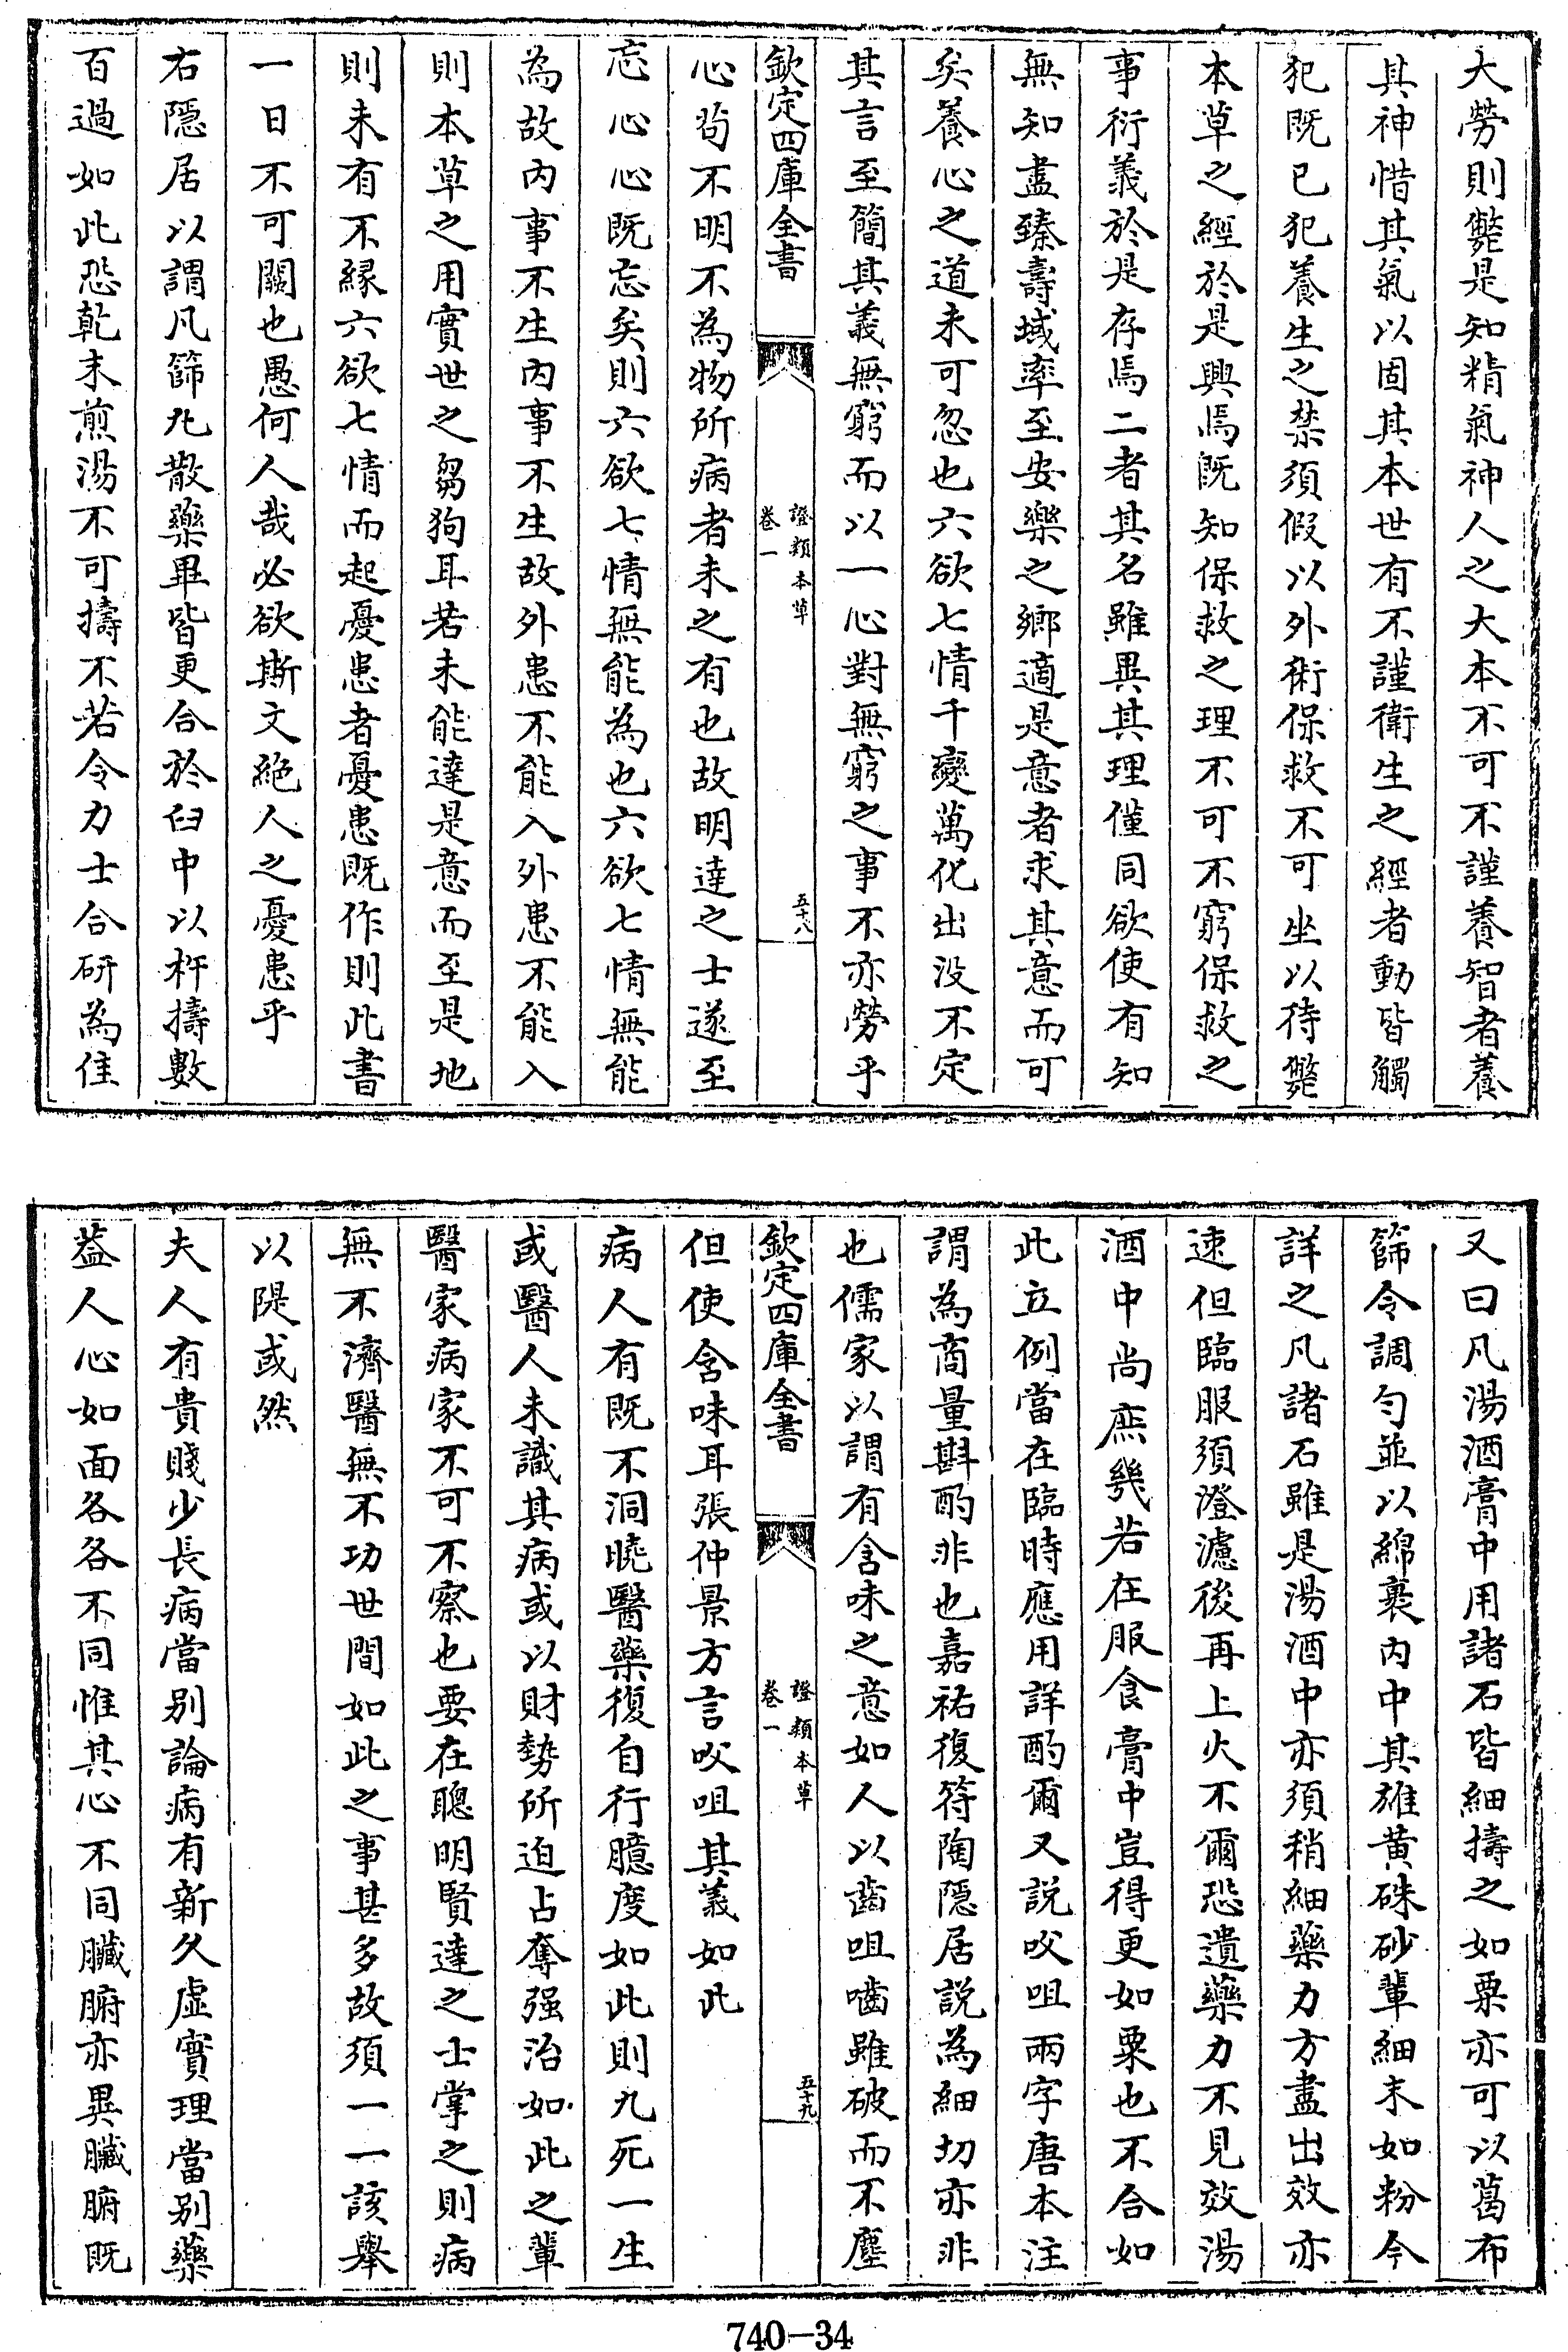 大勞則斃是知精氣神人之大本不可不謹養智者養
其神惜其氣以固其本世有不謹衛生之經者動皆觸
犯既已犯養生之禁須假以外術保救不可坐以待斃
本草之經於是興焉既知保救之理不可不窮保救之
事衍義於是存焉二者其名雖異其理僅同欲使有知
無知盡臻壽域率至安樂之鄉適是意者求其意而可
矣養心之道未可忽也六欲七情千變萬化出没不定
其言至簡其義無窮而以一心對無窮之事不亦勞乎
欽定四庫全書
證類本草
卷一
五十八
心茍不明不為物所病者未之有也故明達之士遂至
忘心心既忘矣則六欲七情無能為也六欲七情無能
為故内事不生内事不生故外患不能入外患不能入
則本草之用實世之芻狗耳若未能達是意而至是地
則未有不縁六欲七情而起憂患者憂患既作則此書
一日不可闕也愚何人哉必欲斯文絶人之憂患乎
右隠居以謂凡篩丸散藥畢皆更合於臼中以杵擣數
百過如此恐乾末煎湯不可擣不若令力士合研為佳
又曰凡湯酒膏中用諸石皆細擣之如粟亦可以葛布
篩令調勻並以綿裹内中其雄黄硃砂輩細末如粉今
詳之凡諸石雖是湯酒中亦須稍細藥力方盡出效亦
速但臨服須澄濾後再上火不爾恐遺藥力不見效湯
酒中尚庶幾若在服食膏中豈得更如粟也不合如
此立例當在臨時應用詳酌爾又説㕮咀兩字唐本注
謂為商量斟酌非也嘉祐復符陶隠居説為細切亦非
也儒家以謂有含味之意如人以齒咀嚙雖破而不塵
欽定四庫全書
證類本草
卷一
五十九
但使含味耳張仲景方言㕮咀其義如此
病人有既不洞曉醫藥復自行臆度如此則九死一生
或醫人未識其病或以財勢所迫占奪强治如此之輩
醫家病家不可不察也要在聰明賢達之士掌之則病
無不濟醫無不功世間如此之事甚多故須一一該舉
以隄或然
夫人有貴賤少長病當别論病有新久虚實理當别藥
葢人心如面各各不同惟其心不同臓腑亦異臓腑既
740-34